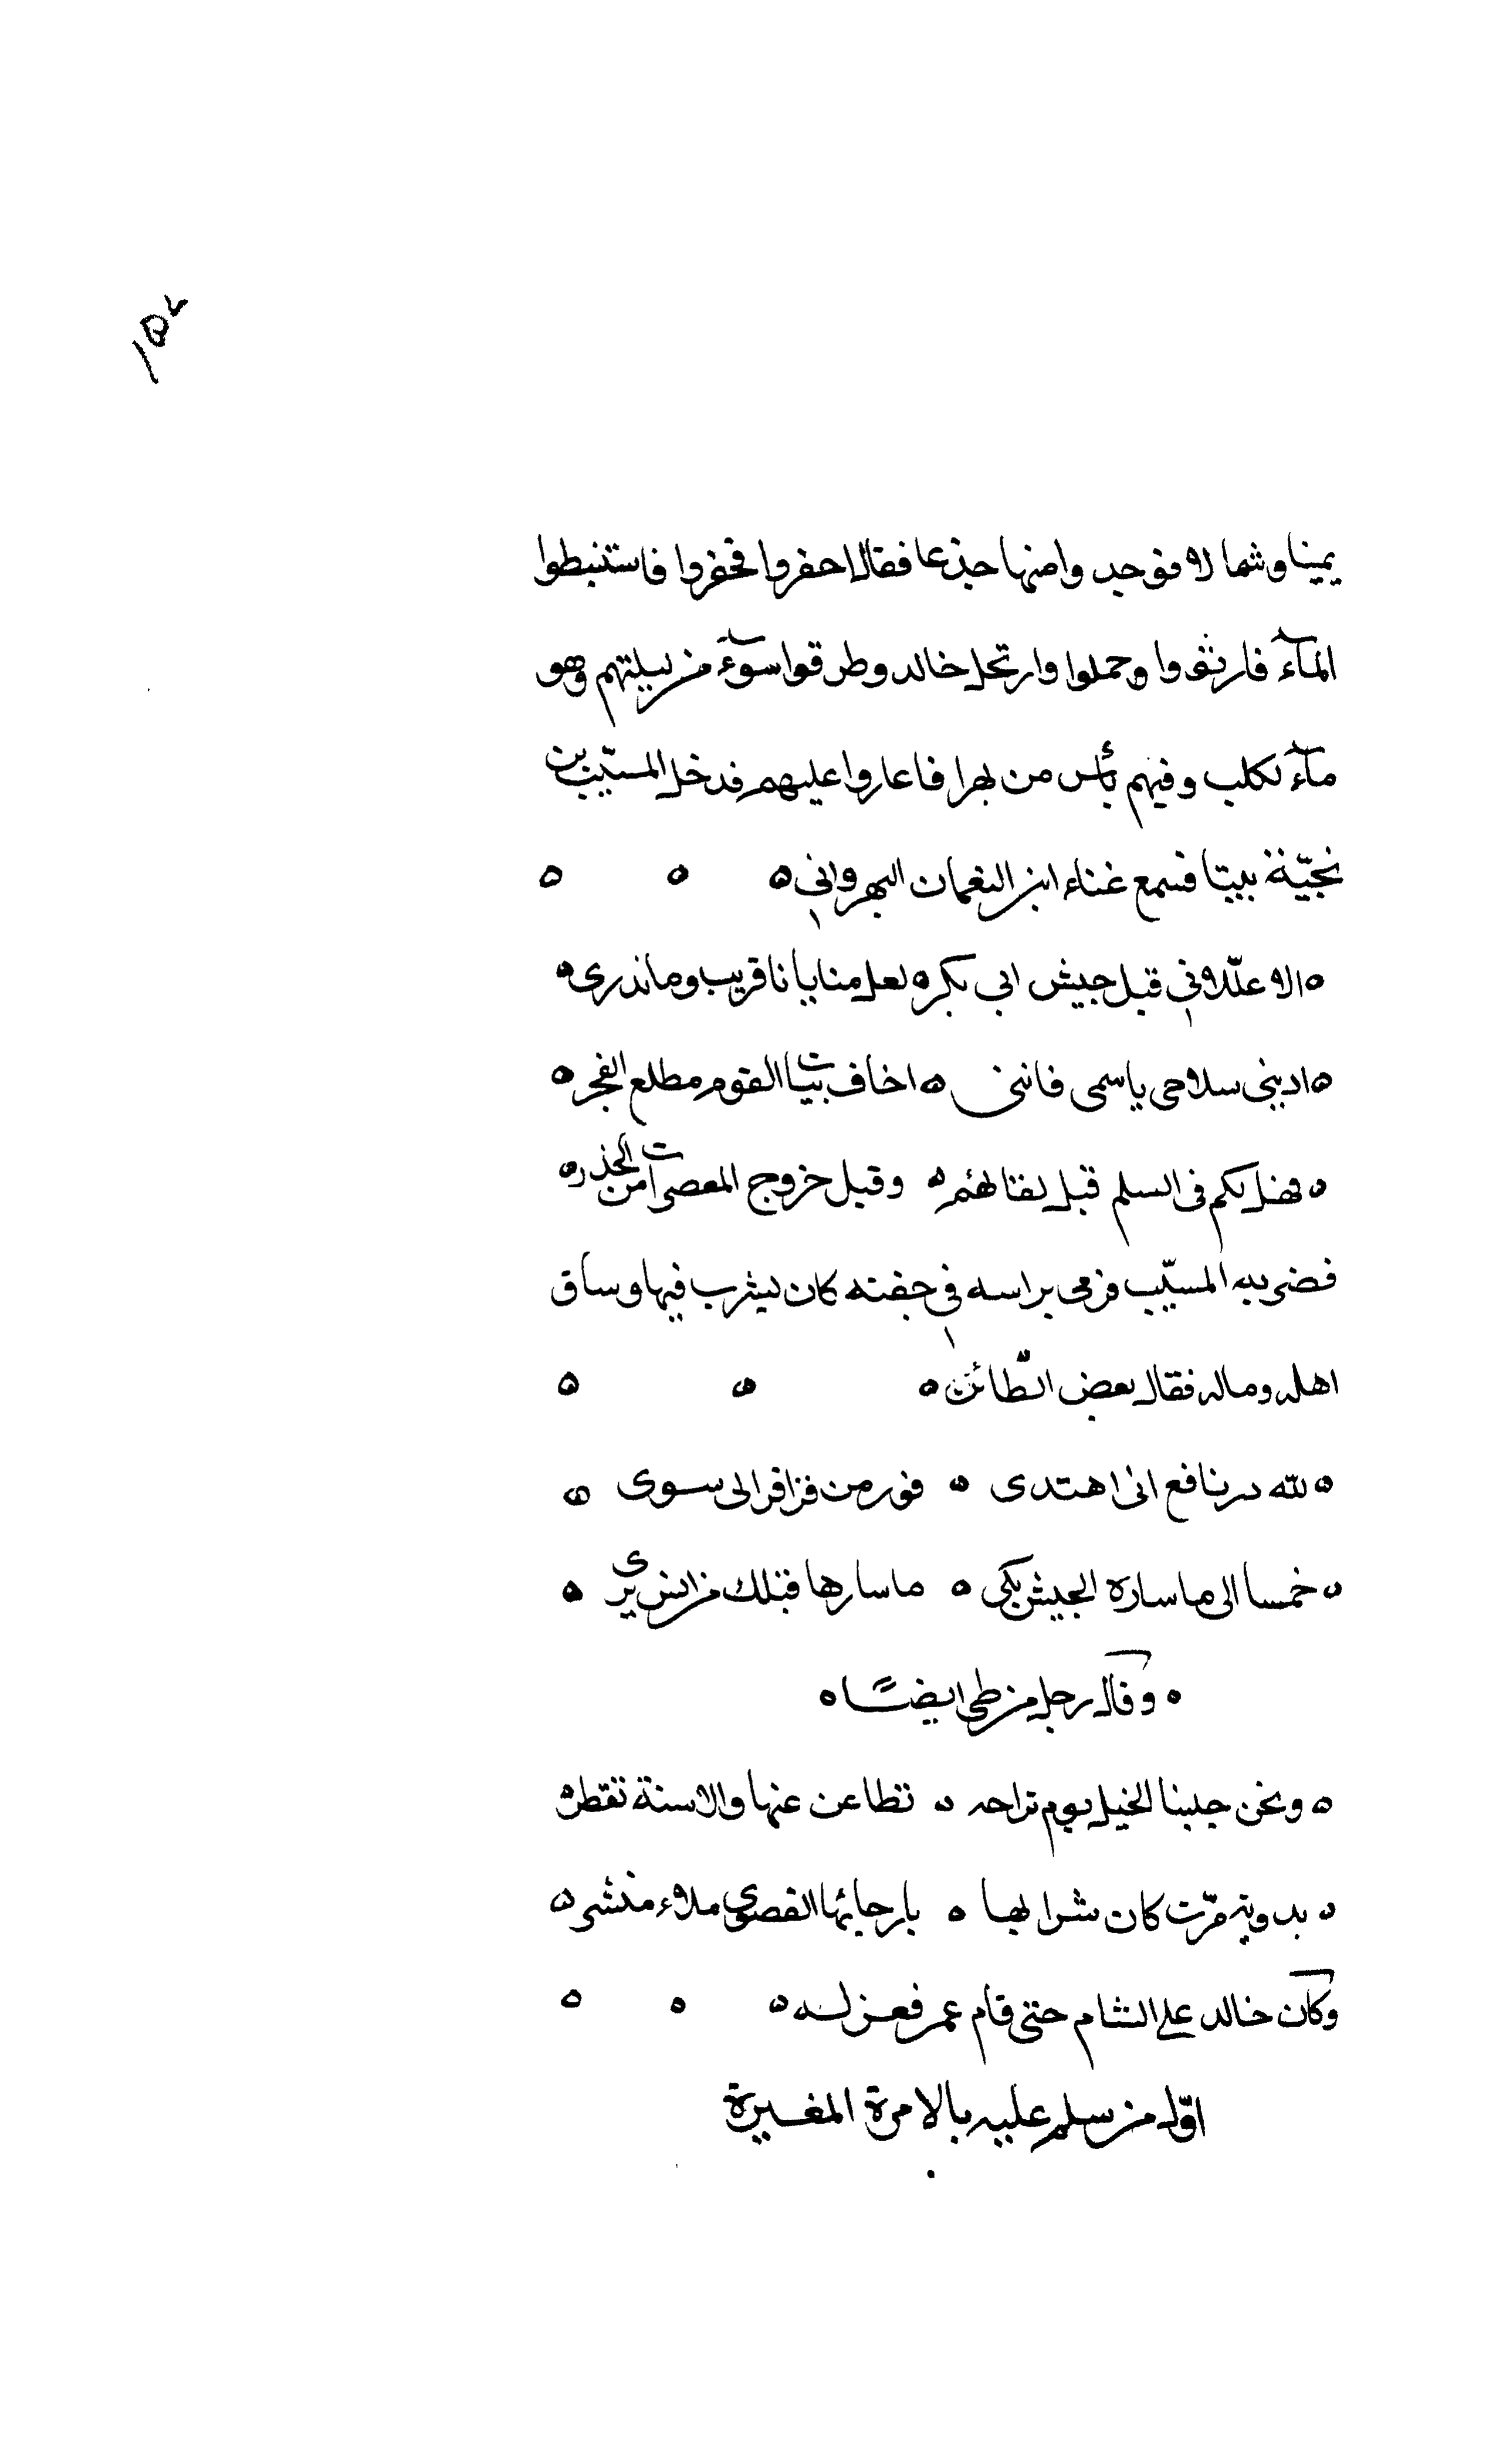 ١٥٧
يمينا وشمالا فوجدوا منها جذعا فقال احفروا فحفروا فاستنبطوا
المآء فارتووا وحملوا وارتحل خالد وطرقوا سوآء من ليلتهم وهو
مآء لكلب وفيهم بأس من بهرا فاعاروا عليهم فدخل المسيّب بن
نجيّة بيتا فسمع غناء ابن النعمان البهرواني ه ه ه
ه الا علّلاني قبل جيش ابي بكر ه لعل منايانا قريب وما ندرى ه
ه اديني سلاحى ياسمى فاننى ه اخاف بيات القوم مطلع الفجر ه
ه فهل لكم فى السلم قبل لقائهم ه وقبل خروج المعصرات من الخدر ه
فضربه المسيّب فرمى براسه في جفنته كان يشرب فيها وساق
اهله وماله فقال بعض الطّائين ه ه ه
ه لله در نافع انى اهتدى ه فور من قراقر الى سوى ه
ه خمسا الى ما ساره الجيش بكى ه ما سارها قبلك من انس يرى ه
ه وقال رجل من طى ايضًا ه
ه ونحن جلبنا الخيل يوم تراحه ه تطاعن عنها والاسنة تقطر ه
ه بدوية مرّت كان شرابها ه بارجائها القصوى ملاء منشر ه
وكان خالد على الشام حتى قام عمر فعزله ه ه ه
اوّل من سلم عليه بالامرة المغيرة